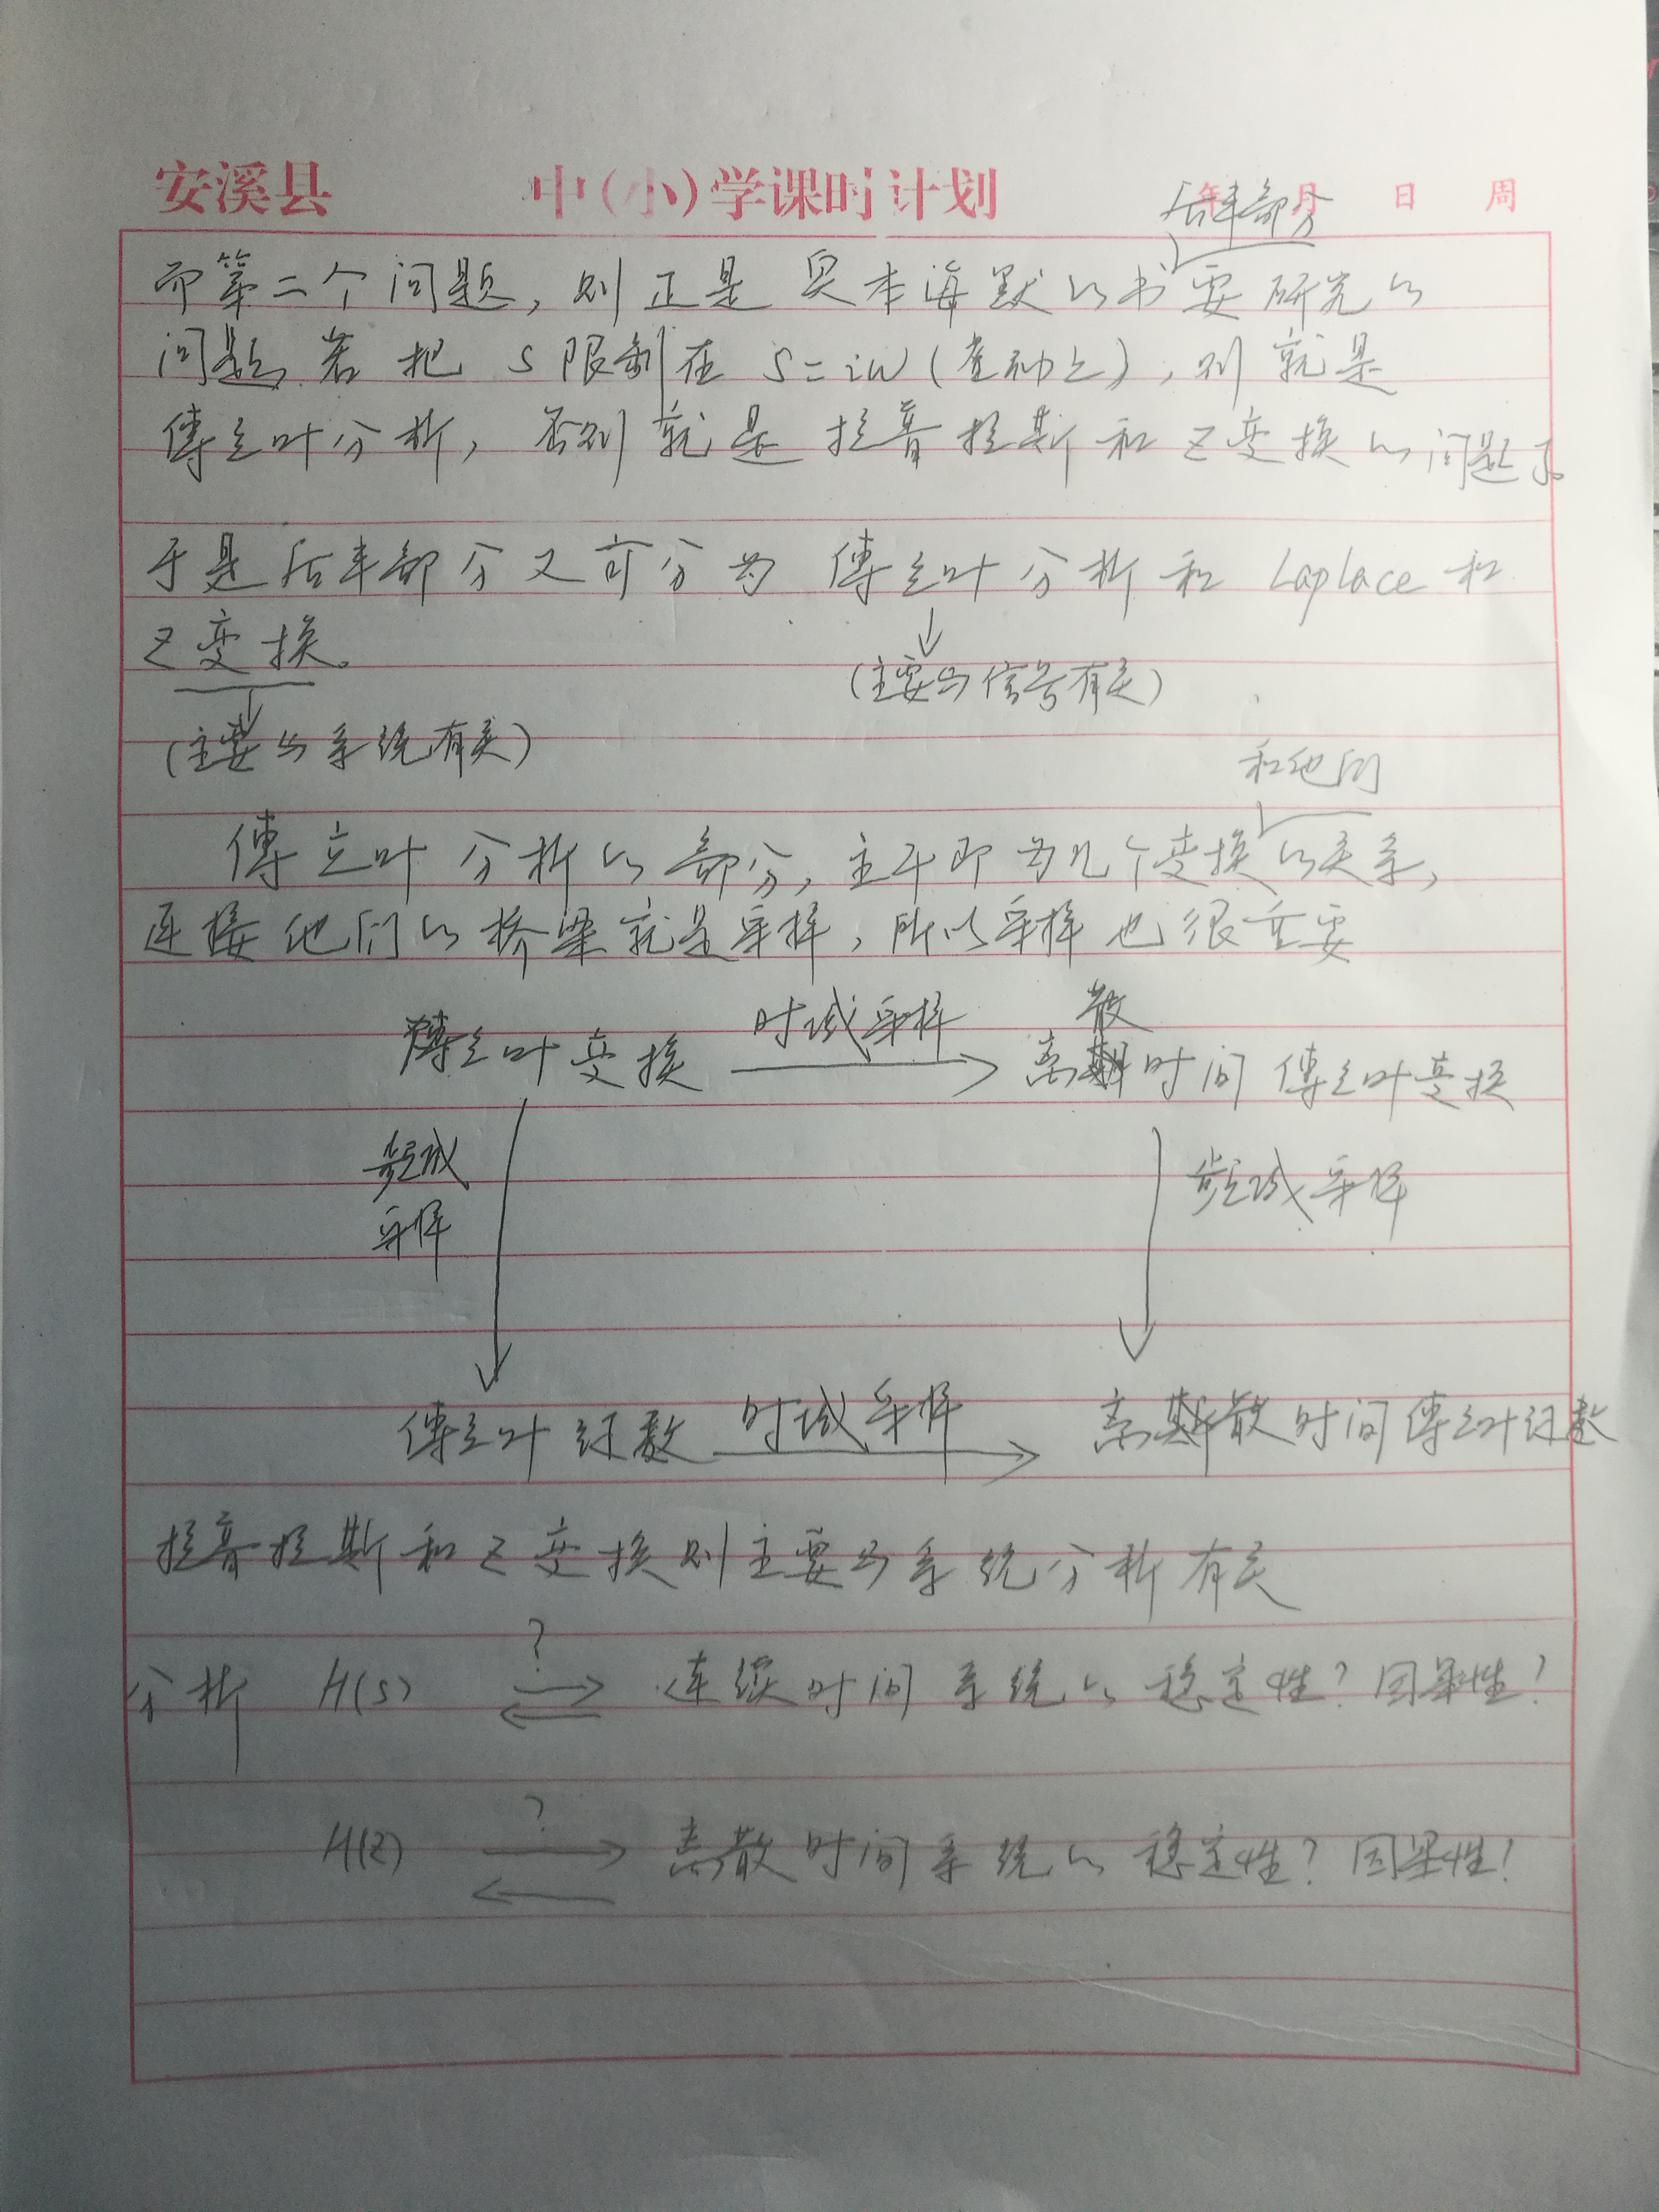 安溪县 中(小)学课时计划 年 月 日 周
后半部分
而第二个问题,则正是奥本海默的书要研究的
问题,若把 S 限制在 S=iω(虚轴上),则就是
傅立叶分析,否则就是拉普拉斯和Z变换的问题了。
于是后半部分又可分为 傅立叶分析和 Laplace 和
Z变换。
(主要与信号有关)
(主要与系统有关)
和他们
傅立叶分析的部分,主干即为几个变换的关系,
连接他们的桥梁就是采样,所以采样也很重要
傅立叶变换 时域采样 离散时间傅立叶变换
频域 频域采样
采样
傅立叶级数 时域采样 离散时间傅立叶级数
拉普拉斯和Z变换则主要与系统分析有关
分析 H(s) ? 连续时间系统的稳定性?因果性?
H(z) ? 离散时间系统的稳定性?因果性?